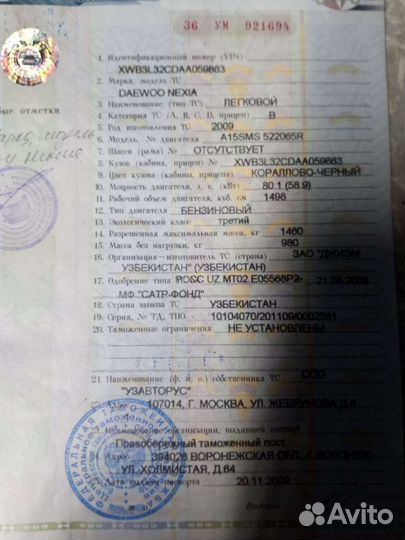 36 УМ 921694
1. Идентификационный номер (VIN)
XWB3L32CDAA059883
2. Марка, модель ТС
DAEWOO NEXIA
3. Наименование (тип ТС) ЛЕГКОВОЙ
4. Категория ТС (А, В, С, D, прицеп) B
5. Год изготовления ТС 2009
6. Модель, № двигателя A15SMS 522065R
7. Шасси (рама) № ОТСУТСТВУЕТ
8. Кузов (кабина, прицеп) № XWB3L32CDAA059883
9. Цвет кузова (кабины, прицепа) КОРАЛЛОВО-ЧЕРНЫЙ
10. Мощность двигателя, л. с. (кВт) 80.1 (58.9)
11. Рабочий объем двигателя, куб. см 1498
12. Тип двигателя БЕНЗИНОВЫЙ
13. Экологический класс третий
14. Разрешенная максимальная масса, кг 1460
15. Масса без нагрузки, кг 980
16. Организация-изготовитель ТС (страна) ЗАО "ДЖИЭМ
УЗБЕКИСТАН" (УЗБЕКИСТАН)
17. Одобрение типа ТС № UZ.MT02.E05568P2
МФ "САТР-ФОНД"
18. Страна вывоза ТС УЗБЕКИСТАН
19. Серия, № ТД, ТПО 10104070/201109/0002561
20. Таможенные ограничения НЕ УСТАНОВЛЕНЫ
21. Наименование (ф. и. о.) собственника ТС ООО
"УЗАВТОРУС"
107014, Г. МОСКВА, УЛ. ЖЕБРУНОВА Д.6
23. Наименование организации, выдавшей паспорт
Правобережный таможенный пост
24. Адрес 394028 ВОРОНЕЖСКАЯ ОБЛ., Г ВОРОНЕЖ,
УЛ. ХОЛМИСТАЯ, Д.64
25. Дата выдачи паспорта 20.11.2009
М. П. Подпись
ые отметки
ФЕДЕРАЛЬНАЯ ТАМОЖЕННАЯ
Avito